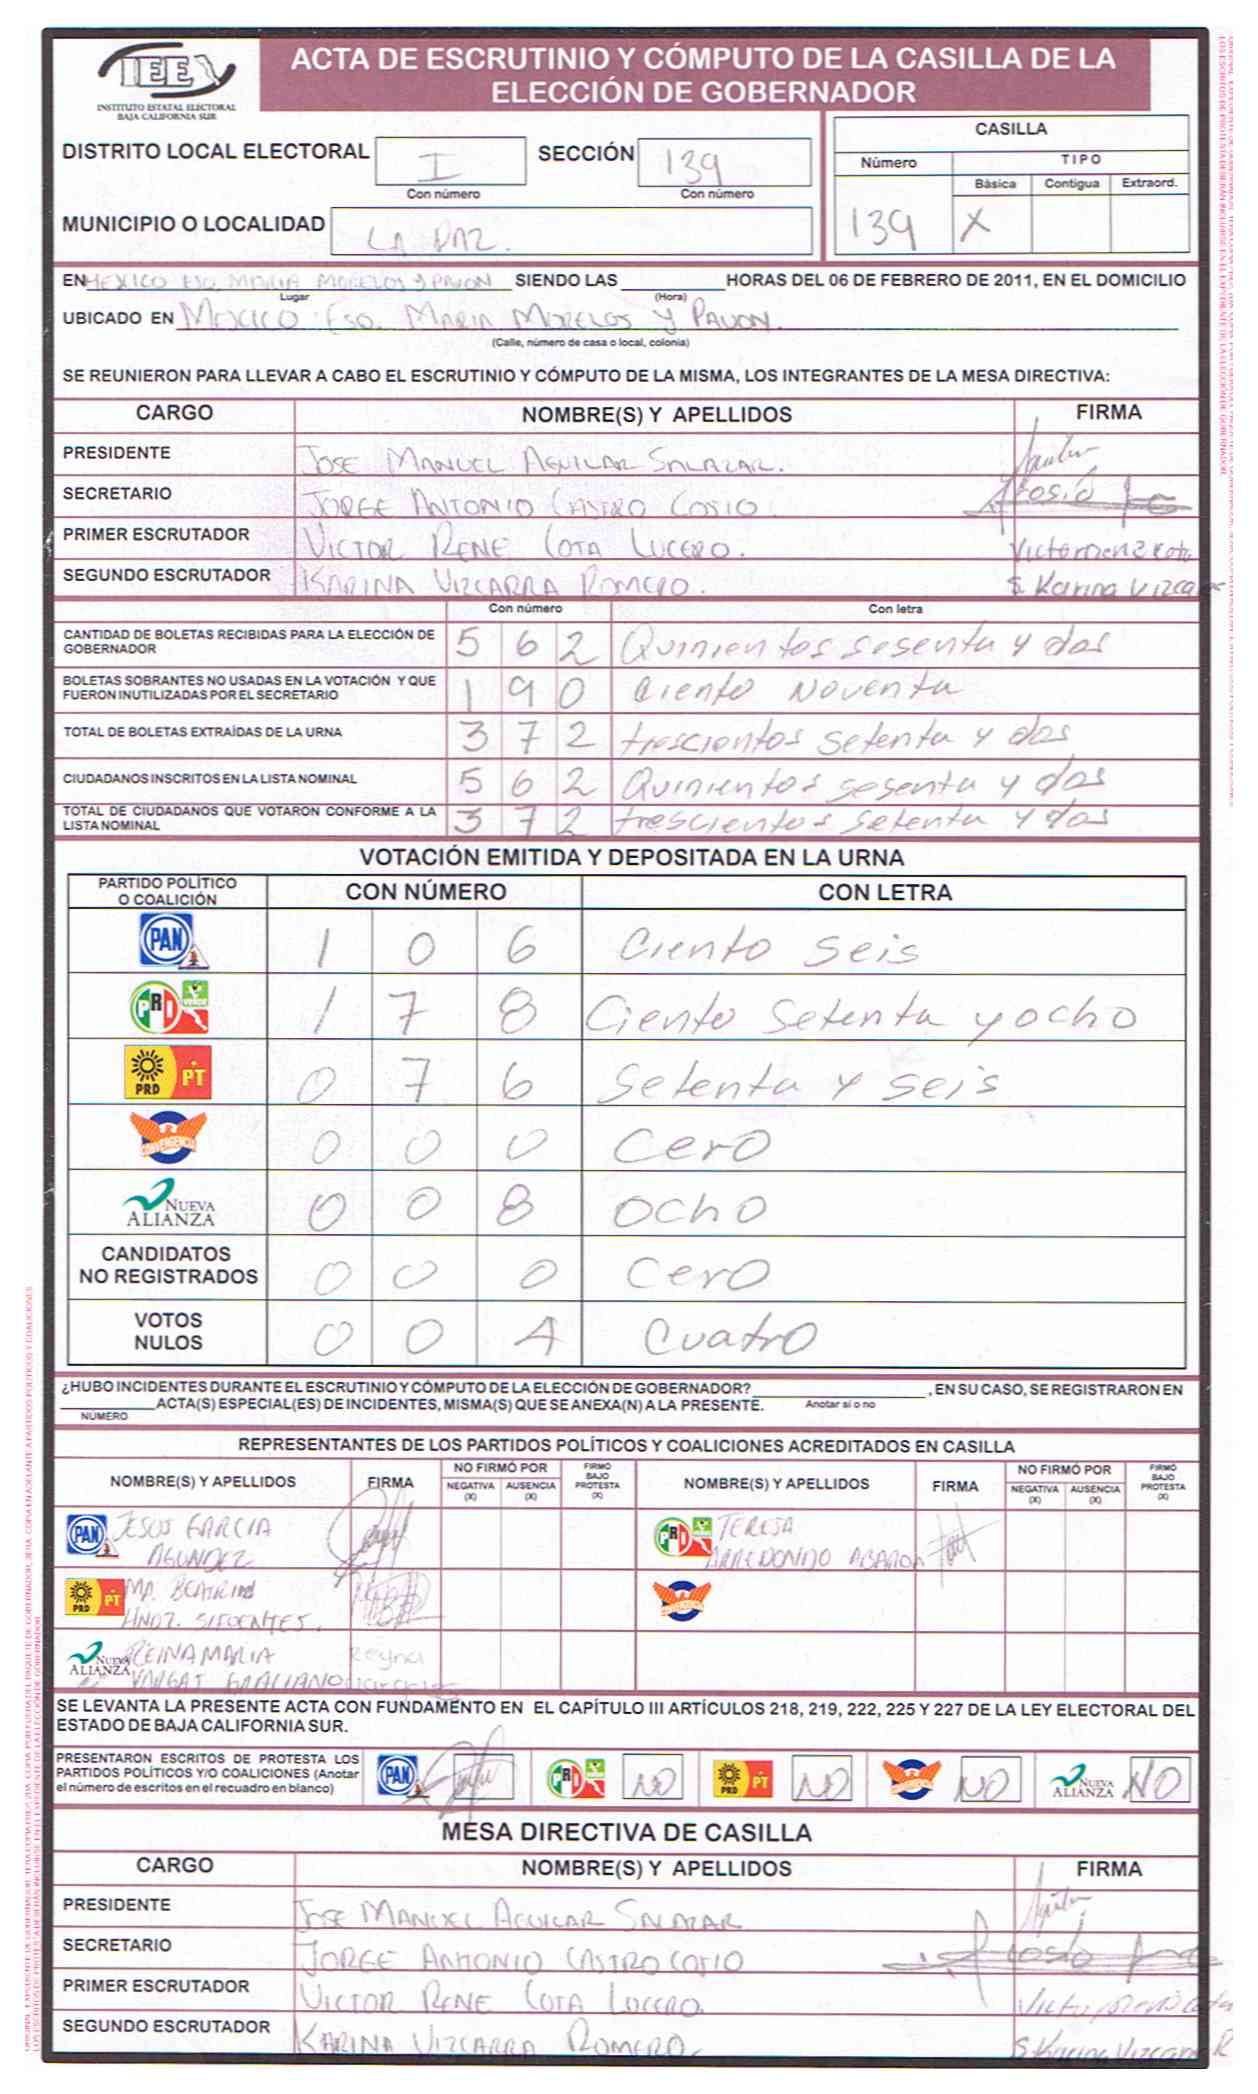 IEE
INSTITUTO ESTATAL ELECTORAL
BAJA CALIFORNIA SUR
ACTA DE ESCRUTINIO Y CÓMPUTO DE LA CASILLA DE LA
ELECCIÓN DE GOBERNADOR
DISTRITO LOCAL ELECTORAL I SECCIÓN 139
Con número Con número
MUNICIPIO O LOCALIDAD LA PAZ.
CASILLA
Número TIPO
Básica Contigua Extraord.
139 X
EN MEXICO ESQ. MARIA MORELOS Y PAVON SIENDO LAS HORAS DEL 06 DE FEBRERO DE 2011, EN EL DOMICILIO
Lugar (Hora)
UBICADO EN MEXICO ESQ. MARIA MORELOS Y PAVON.
(Calle, número de casa o local, colonia)
SE REUNIERON PARA LLEVAR A CABO EL ESCRUTINIO Y CÓMPUTO DE LA MISMA, LOS INTEGRANTES DE LA MESA DIRECTIVA:
CARGO NOMBRE(S) Y APELLIDOS FIRMA
PRESIDENTE JOSE MANUEL AGUILAR SALAZAR.
SECRETARIO JORGE ANTONIO CASTRO COSIO.
PRIMER ESCRUTADOR VICTOR RENE COTA LUCERO.
SEGUNDO ESCRUTADOR KARINA VIZCARRA ROMERO. S. Karina Vizcarra
Con número Con letra
CANTIDAD DE BOLETAS RECIBIDAS PARA LA ELECCIÓN DE
GOBERNADOR 5 6 2 Quinientos sesenta y dos
BOLETAS SOBRANTES NO USADAS EN LA VOTACIÓN Y QUE
FUERON INUTILIZADAS POR EL SECRETARIO 1 9 0 Ciento Noventa
TOTAL DE BOLETAS EXTRAÍDAS DE LA URNA 3 7 2 trescientos setenta y dos
CIUDADANOS INSCRITOS EN LA LISTA NOMINAL 5 6 2 Quinientos sesenta y dos
TOTAL DE CIUDADANOS QUE VOTARON CONFORME A LA
LISTA NOMINAL 3 7 2 trescientos setenta y dos
VOTACIÓN EMITIDA Y DEPOSITADA EN LA URNA
PARTIDO POLÍTICO
O COALICIÓN CON NÚMERO CON LETRA
PAN 1 0 6 Ciento seis
PRI VERDE 1 7 8 Ciento setenta y ocho
PRD PT 0 7 6 Setenta y seis
CONVERGENCIA 0 0 0 Cero
NUEVA ALIANZA 0 0 8 Ocho
CANDIDATOS
NO REGISTRADOS 0 0 0 Cero
VOTOS
NULOS 0 0 4 Cuatro
¿HUBO INCIDENTES DURANTE EL ESCRUTINIO Y CÓMPUTO DE LA ELECCIÓN DE GOBERNADOR? , EN SU CASO, SE REGISTRARON EN
ACTA(S) ESPECIAL(ES) DE INCIDENTES, MISMA(S) QUE SE ANEXA(N) A LA PRESENTE. Anotar sí o no
NÚMERO
REPRESENTANTES DE LOS PARTIDOS POLÍTICOS Y COALICIONES ACREDITADOS EN CASILLA
NOMBRE(S) Y APELLIDOS FIRMA NO FIRMÓ POR NEGATIVA (X) AUSENCIA (X) FIRMÓ BAJO PROTESTA (X) NOMBRE(S) Y APELLIDOS FIRMA NO FIRMÓ POR NEGATIVA (X) AUSENCIA (X) FIRMÓ BAJO PROTESTA (X)
PAN JESUS GARCIA PRI VERDE TERESA
AGUNDEZ ARREDONDO
PRD PT MA. BEATRIZ CONVERGENCIA
HNDZ. SIFUENTES.
NUEVA ALIANZA REINA MARIA Reyna
VARGAS GRACIANO
SE LEVANTA LA PRESENTE ACTA CON FUNDAMENTO EN EL CAPÍTULO III ARTÍCULOS 218, 219, 222, 225 Y 227 DE LA LEY ELECTORAL DEL
ESTADO DE BAJA CALIFORNIA SUR.
PRESENTARON ESCRITOS DE PROTESTA LOS
PARTIDOS POLÍTICOS Y/O COALICIONES (Anotar
el número de escritos en el recuadro en blanco)
PAN PRI VERDE NO PRD PT NO CONVERGENCIA NO NUEVA ALIANZA NO
MESA DIRECTIVA DE CASILLA
CARGO NOMBRE(S) Y APELLIDOS FIRMA
PRESIDENTE JOSE MANUEL AGUILAR SALAZAR
SECRETARIO JORGE ANTONIO CASTRO COSIO
PRIMER ESCRUTADOR VICTOR RENE COTA LUCERO.
SEGUNDO ESCRUTADOR KARINA VIZCARRA ROMERO. S. Karina Vizcarra R